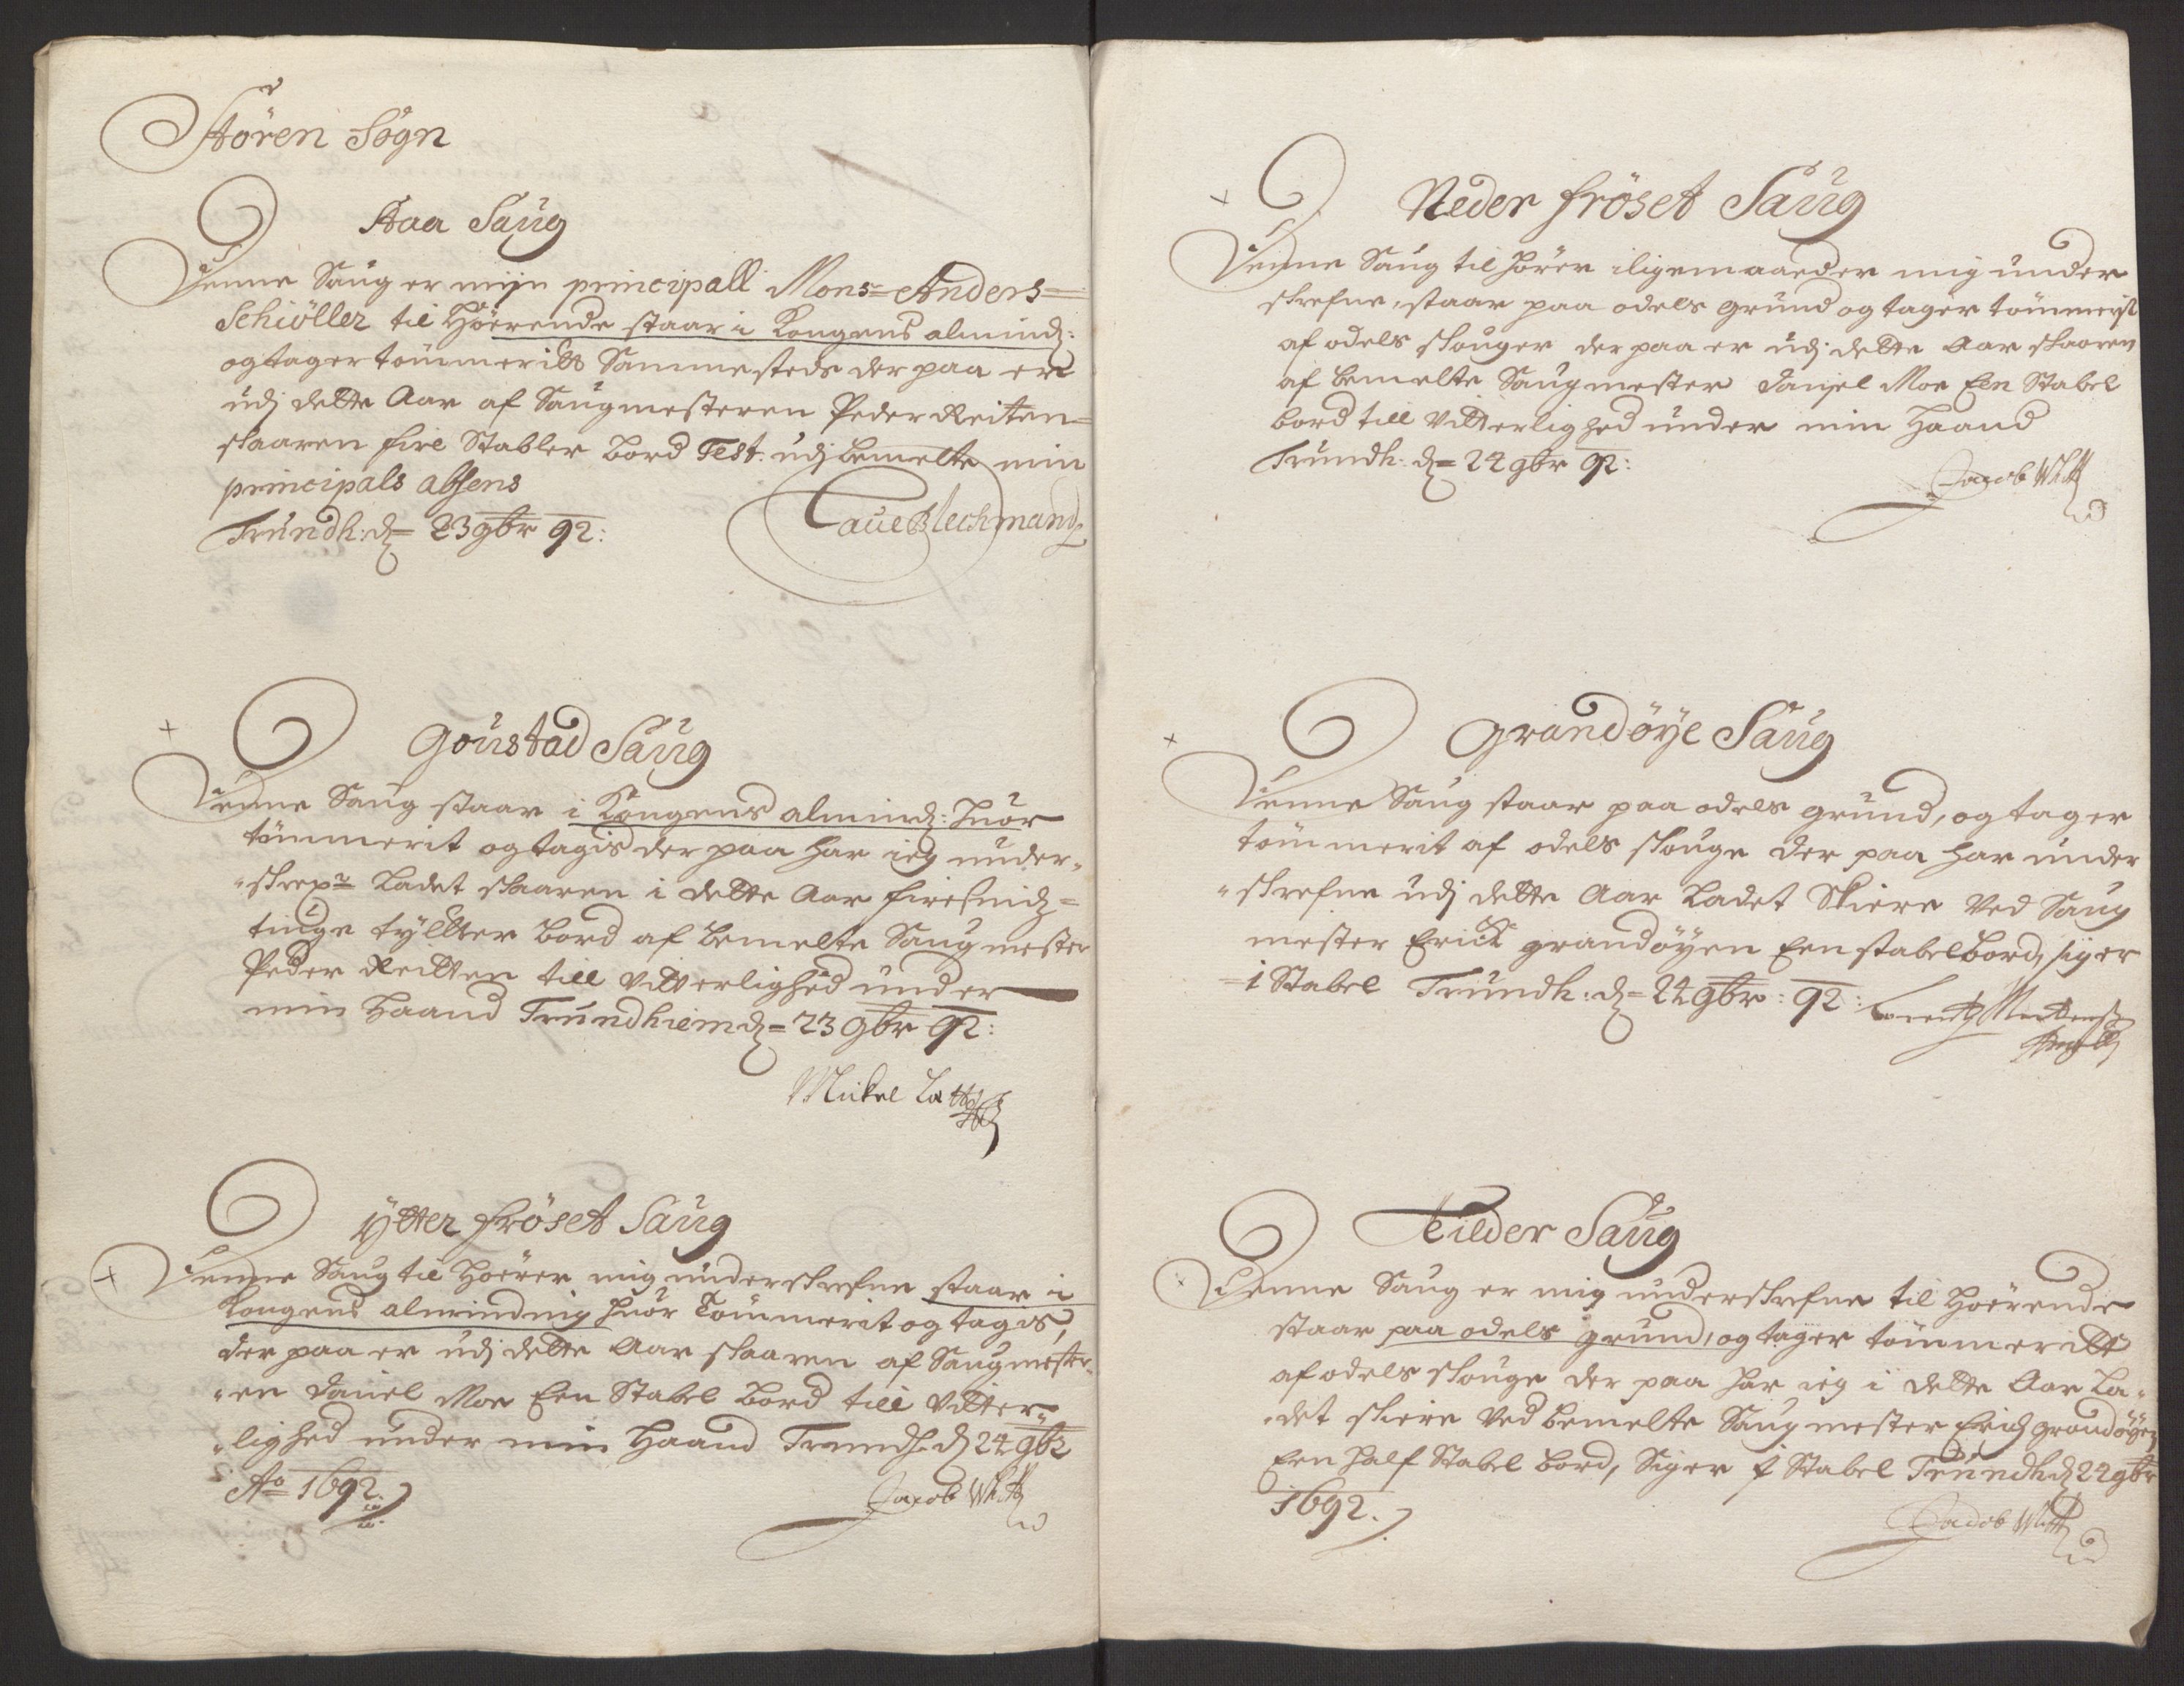 Stören Sogn
Aaa Saug
Denne Saug er mijn principall Monsr Anders
Schiöller til Höerende staar i Kongens almind:
og tager tömmeritt Sammesteds der paa er
udj dette Aar af Saugmesteren Peder Reiten
skaaren fire Stabler bord Test: udj bemelte min
principals absens
Trundh: d= 23 9br 92:
Laue Blechmand
Goustad Saug
Denne Saug staar i Kongens almind: huor
tömmerit og tagis der paa har ieg under-
"skrefne Ladet skaaren i dette Aar
tiuge tyllter bord af bemelte Saugmester
Peder Reitten till vitterlighed under
min Haand Trundhiem d= 23 9br 92:
Mickel
Ytter fröset Saug
Denne Saug til Hoerer mig underskrefne staar i
Kongens almindnig huor Tömmerit og tagis,
der paa er udj dette Aar skaaren af Saugmester-
"en Daniel Moe Een Stabel bord till vitter-
"lighed under min Haand Trundh: d 24 9br
Ao 1692.
Jacob
Neder fröset Saug
Denne Saug til hörer iligemaader mig under
skrefne, staar paa odels grund og tager tömmerit
af odels skouger der paa er udj dette Aar skaaren
af bemelte Saugmester Danjel Moe Een Stabel
bord till vitterlighed under min Haand
Trundh: d= 24 9br 92:
Jacob
Grandöye Saug
Denne Saug staar paa odels grund, og tager
tömmerit af odels skouge der paa har under
"skrefne udj dette Aar Ladet Skiere Ved Saug
mester Erick grandöyen Een stabel bord, siger
=1 Stabel Trundh: d= 24 9br: 92: Lorentz Mortensen
Angell
Tilder Saug
Denne Saug er mig underskrefne til Hoerende
staar paa odels grund, og tager tömmeritt
af odels skouge der paa har ieg i dette Aar La-
"det skiere Ved bemelte Saugmester Erich grandöyen
Een half Stabel bord, Siger ½ Stabel Trundh d 24 9br
1692.
Jacob